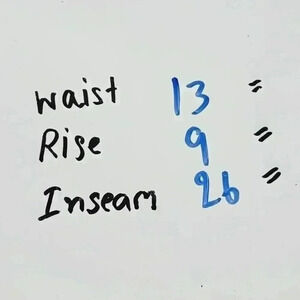 Waist 13 "
Rise 9 "
Inseam 26 "